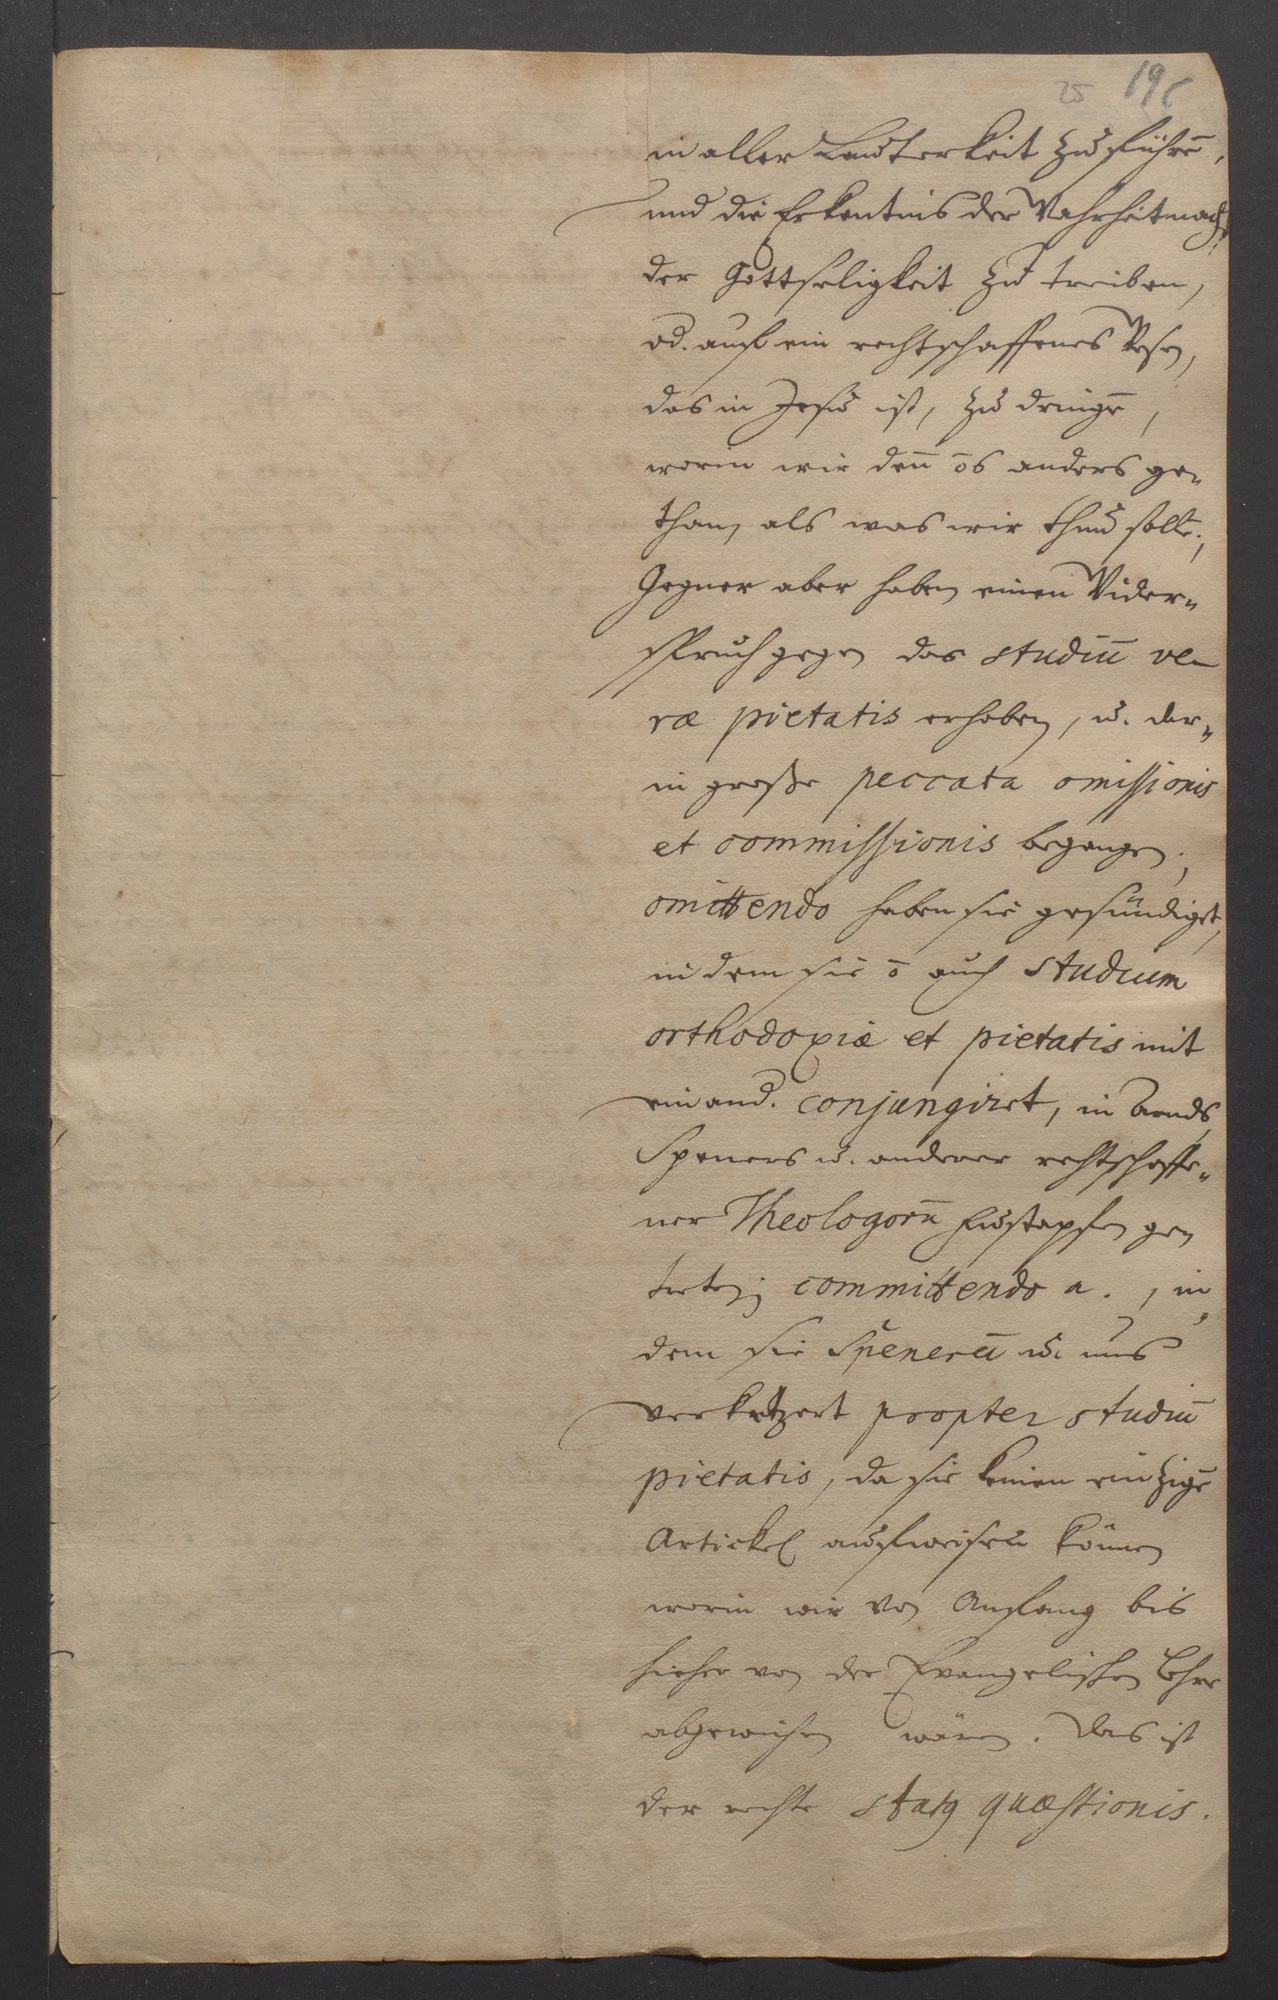 25 196
in aller Lauterkeit zu führē,
und die Erkentnis der Wahrheit nach
der Gottseligkeit zu treiben,
od. auf ein rechtschaffenes Wesen,
das in Jesu ist, zu dringē,
worin wir den̄ ōs anders ge-
than, als was wir thun soltē;
Gegner aber haben einen Wider-
spruch gegen das studiū ve-
ræ pietatis erhoben, u. dar-
in große peccata omissionis
et commissionis begangen;
omittendo haben sie gesündiget,
in dem sie ō auch studium
orthodoxiæ et pietatis mit
einand. conjungiret, in Arnds,
Speners u. anderer rechtschaffe-
ner Theologorū Fußtapfen ge-
treten; committendo a., in-
dem sie Spenerū u. uns
verketzert propter studiū
pietatis, da sie keinen eintzigē
Artickel aufweisen können
worin wir von Anfang bis
hieher von der Evangelischen Lehre
abgewichen wären. Das ist
der rechte statꝰ quæstionis.